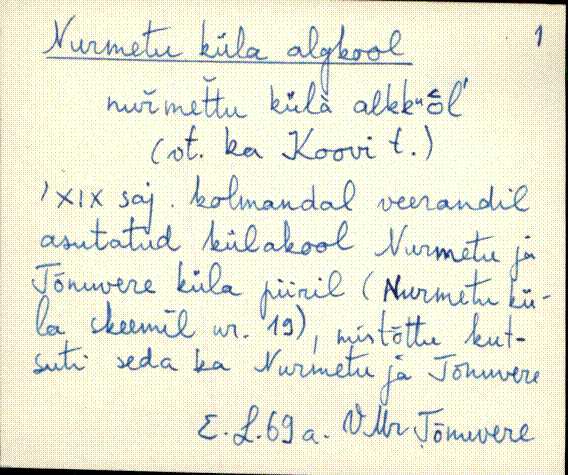 Nurmetu küla algkool 1
nuřmeťtu külà alkk
(vt. ka Koovi t.)
'XIX saj. kolmandal veerandil
asutatud külakool Nurmetu ja
Tõnuvere küla piiril (Nurmetu kü-
la skeemil nr. 19), mistõttu kut-
suti seda ka Nurmetu ja Tõnuvere
E. L. 69 a. VMr Tõnuvere